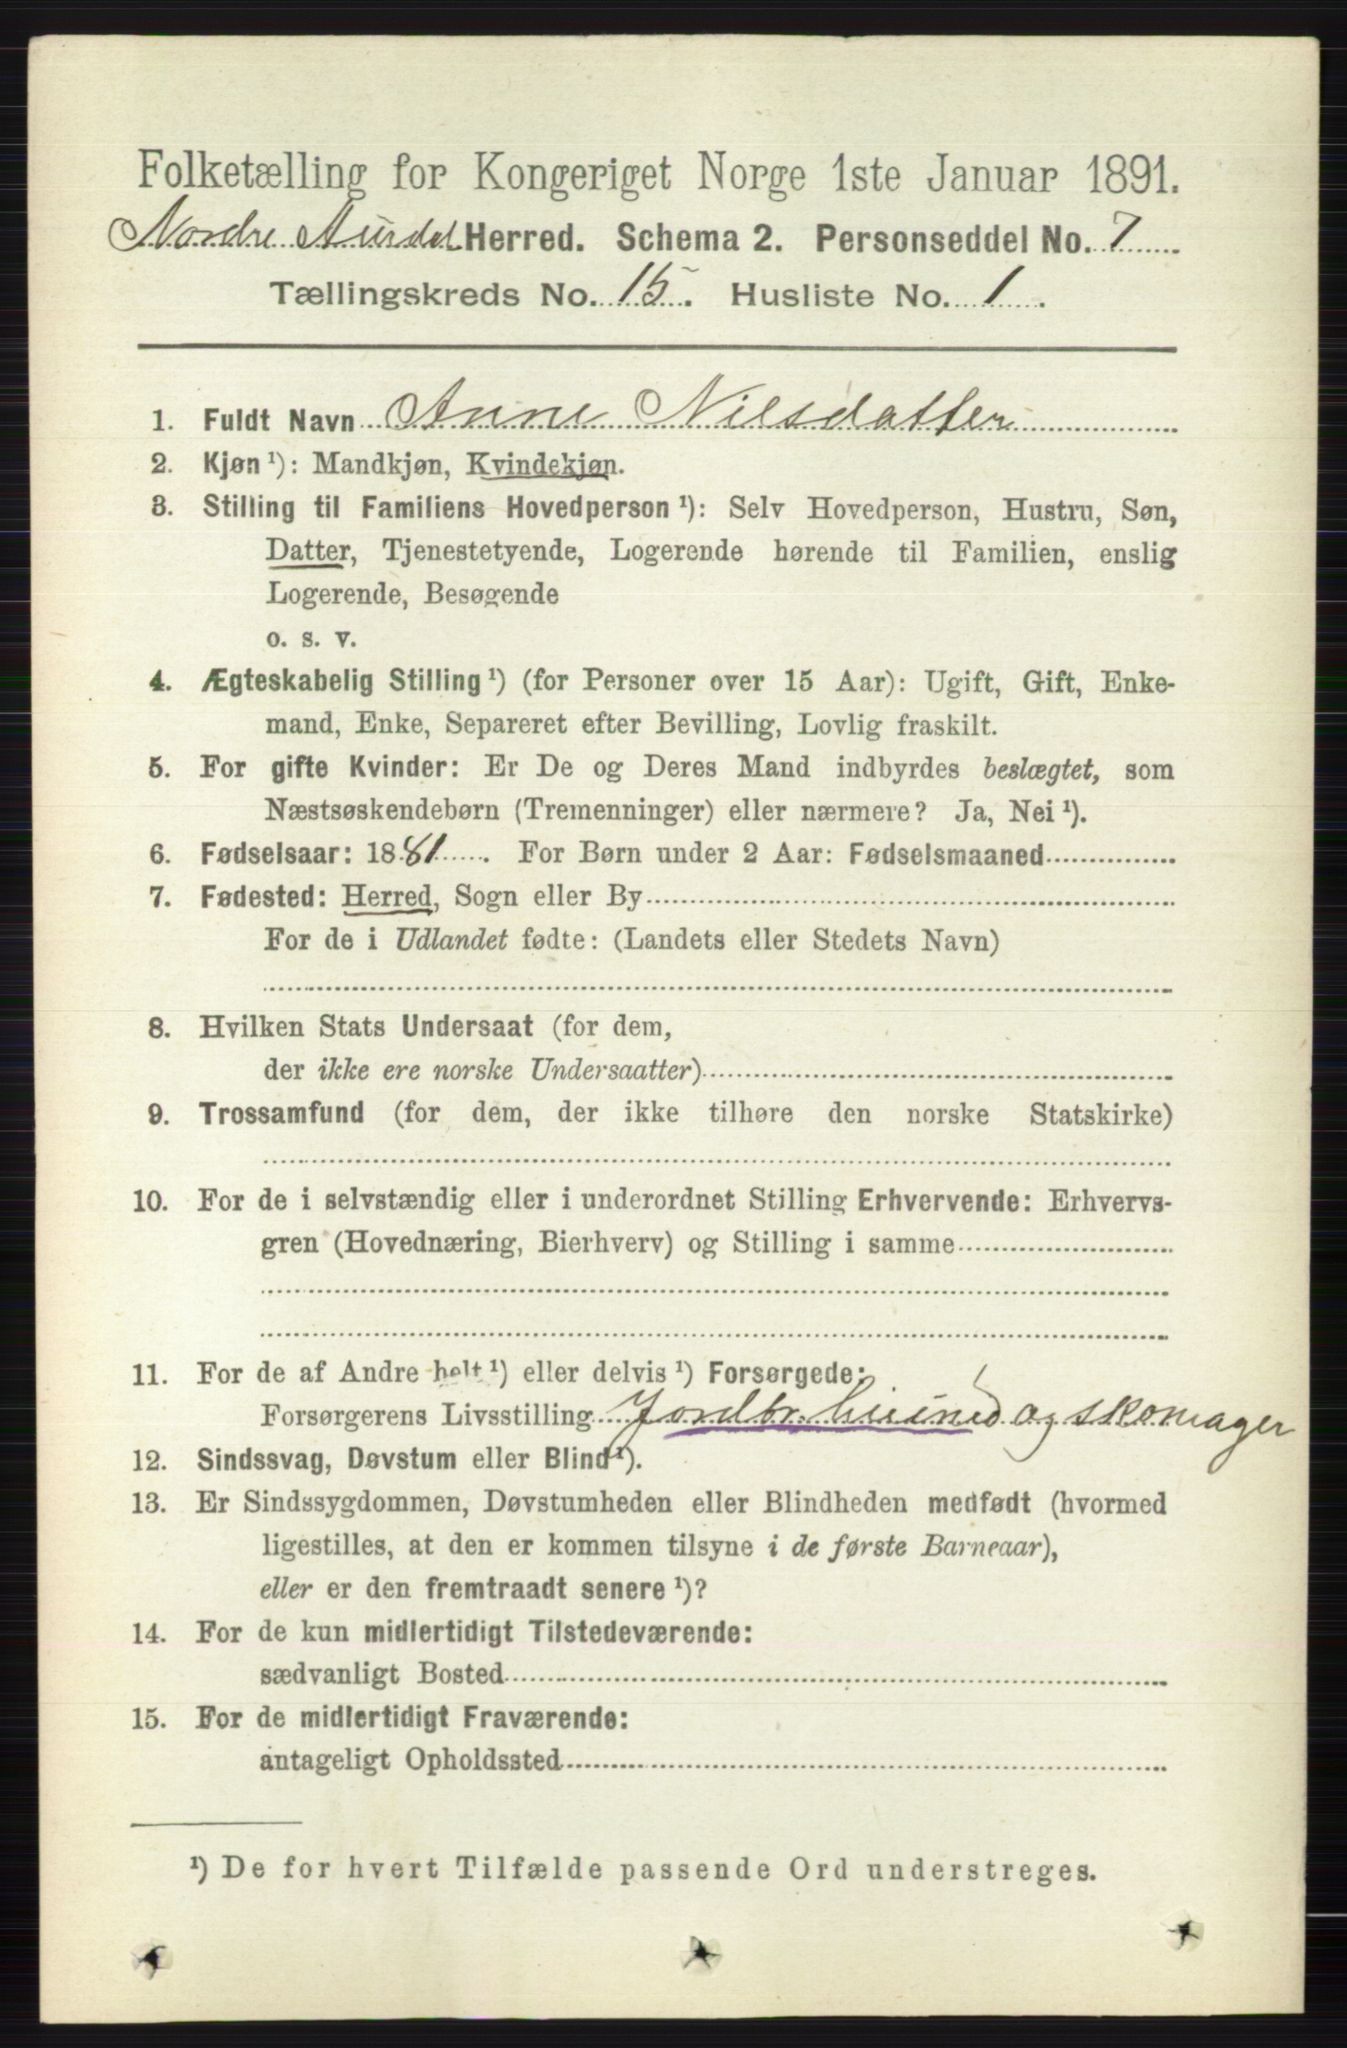 Folketælling for Kongeriget Norge 1ste Januar 1891.
Nordre Aurdal Herred. Schema 2. Personseddel No. 7
Tællingskreds No. 15. Husliste No. 1.
1. Fuldt Navn Anne Nilsdatter
2. Kjøn ¹): Mandkjøn, Kvindekjøn.
3. Stilling til Familiens Hovedperson ¹): Selv Hovedperson, Hustru, Søn,
Datter, Tjenestetyende, Logerende hørende til Familien, enslig
Logerende, Besøgende
o. s. v.
4. Ægteskabelig Stilling ¹) (for Personer over 15 Aar): Ugift, Gift, Enke-
mand, Enke, Separeret efter Bevilling, Lovlig fraskilt.
5. For gifte Kvinder: Er De og Deres Mand indbyrdes beslægtet, som
Næstsøskendebørn (Tremenninger) eller nærmere? Ja, Nei ¹).
6. Fødselsaar: 1881. For Børn under 2 Aar: Fødselsmaaned
7. Fødested: Herred, Sogn eller By
For de i Udlandet fødte: (Landets eller Stedets Navn)
8. Hvilken Stats Undersaat (for dem,
der ikke ere norske Undersaatter)
9. Trossamfund (for dem, der ikke tilhøre den norske Statskirke)
10. For de i selvstændig eller i underordnet Stilling Erhvervende: Erhvervs-
gren (Hovednæring, Bierhverv) og Stilling i samme
11. For de af Andre helt ¹) eller delvis ¹) Forsørgede:
Forsørgerens Livsstilling Jordbr. og skomager
12. Sindssvag, Døvstum eller Blind ¹).
13. Er Sindssygdommen, Døvstumheden eller Blindheden medfødt (hvormed
ligestilles, at den er kommen tilsyne i de første Barneaar),
eller er den fremtraadt senere ¹)?
14. For de kun midlertidigt Tilstedeværende:
sædvanligt Bosted
15. For de midlertidigt Fraværende:
antageligt Opholdssted
¹) De for hvert Tilfælde passende Ord understreges.